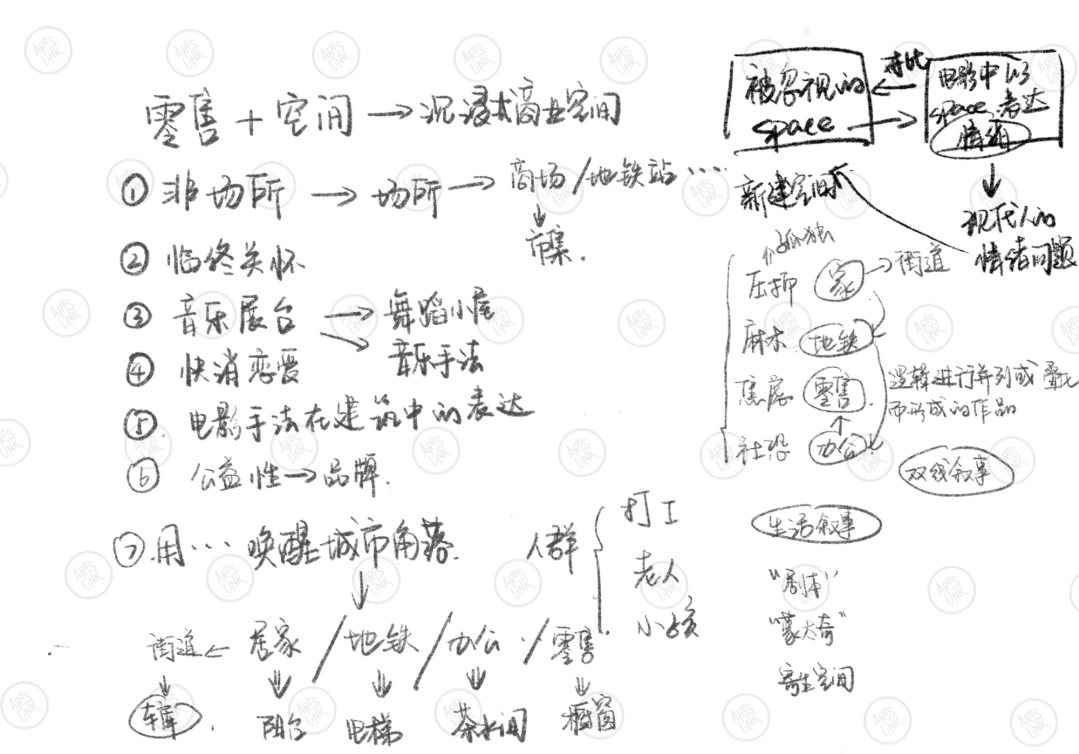 零售 + 空间 → 沉浸式商业空间
① 非场所 → 场所 → 商场/地铁站 ……
↓
市集.
② 临终关怀
③ 音乐展台 → 舞蹈小屋
→ 音乐手法
④ 快消恋爱
⑤. 电影手法在建筑中的表达
⑥ 公益性 → 品牌.
⑦. 用 … 唤醒城市角落.
↓
街道 ← 居家 / 地铁 / 办公 / 零售
车库. 阳台 电梯 茶水间 橱窗
人群 {
打工
老人
小孩
被忽视的
space
对比
电影中以
space 表达
情绪
↓
现代人的
情绪问题
新建空间
孤独
压抑 家 → 街道
麻木. 地铁
焦虑 零售.
社恐 办公.
逻辑进行并列或叠化
而形成的作品
双线叙事
生活叙事
"剧本"
"蒙太奇"
寄生空间
ARTS LINK